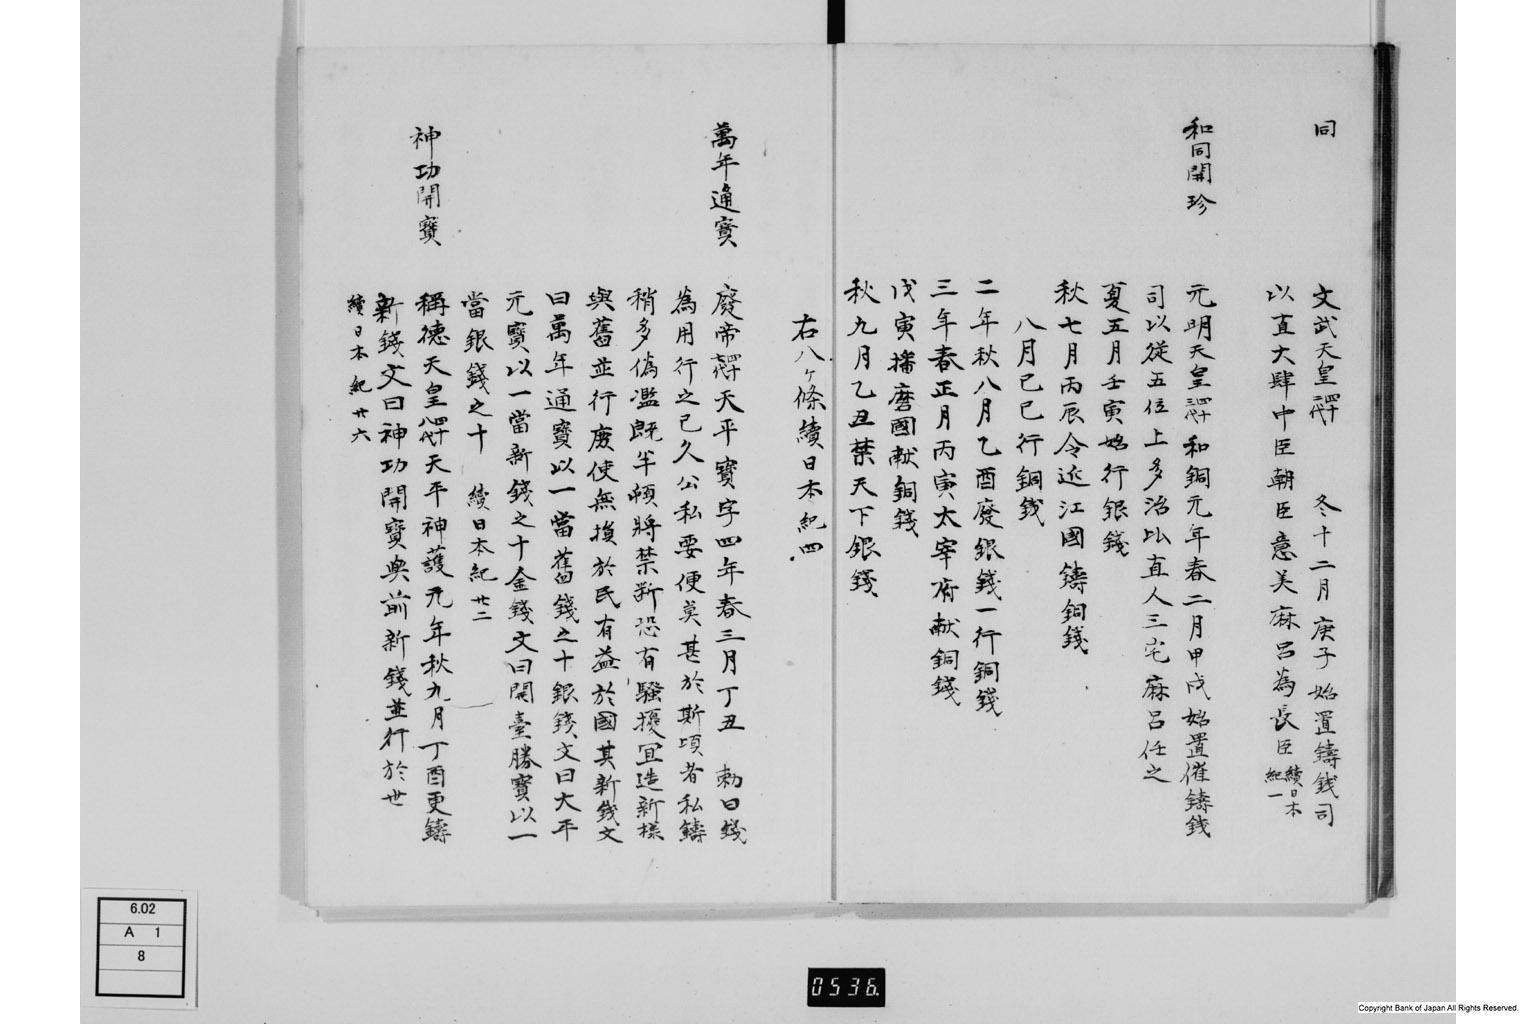 同
文武天皇四十二代　冬十二月庚子始置鑄錢司
以直大肆中臣朝臣意美麻呂為長臣續日本紀一
和同開珍
元明天皇四十三代和銅元年春二月甲戌始置催鑄錢
司以從五位上多治比直人三宅麻呂任之
夏五月壬寅始行銀錢
秋七月丙辰令近江國鑄銅錢
八月己巳行銅錢
二年秋八月乙酉廢銀錢一行銅錢
三年春正月丙寅太宰府献銅錢
戊寅播磨國献銅錢
秋九月乙丑禁天下銀錢
右八ヶ條續日本紀四
萬年通寳
廢帝四十七代天平寳字四年春三月丁丑　勅曰錢
為用行之已久公私要便莫甚於斯頃者私鑄
稍多偽濫既半頓將禁斷恐有騷擾宜造新樣
與舊並行庶使無損於民有益於國其新錢文
曰萬年通寳以一當舊錢之十銀錢文曰大平
元寳以一當新錢之十金錢文曰開臺勝寳以一
當銀錢之十　續日本紀廿二
神功開寳
稱德天皇四十八代天平神護元年秋九月丁酉更鑄
新錢文曰神功開寳與前新錢並行於世
續日本紀廿六
6.02
A 1
8
0536.
Copyright Bank of Japan All Rights Reserved.